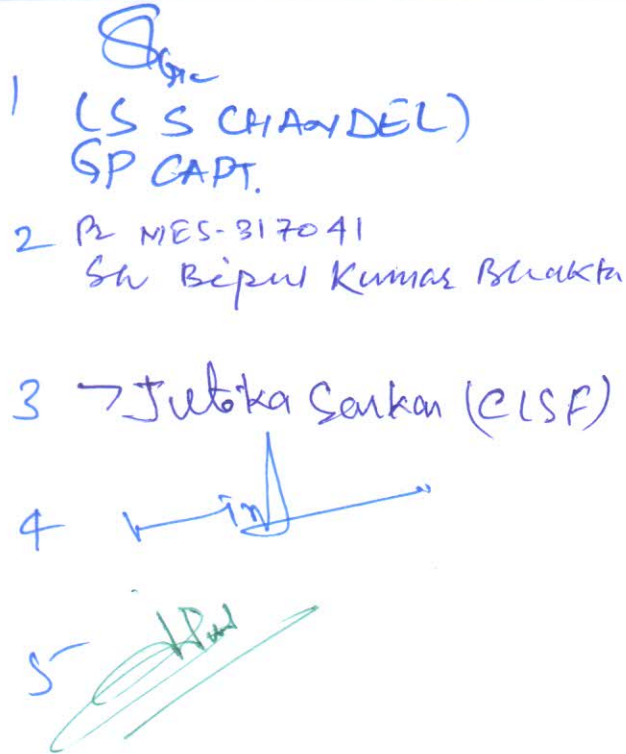 1
(S S CHANDEL)
GP CAPT.
2 MES-317041
Sh Bipul Kumar Bhakta
3 → Jutika Sarkar (CISF)
4
5